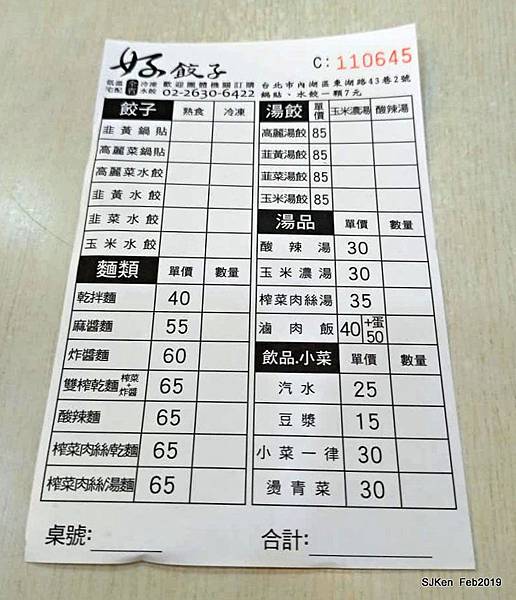 好餃子
C: 110645
低溫宅配 生的水餃 冷凍 歡迎團體機關訂購
02-2630-6422
台北市內湖區東湖路43巷2號
鍋貼、水餃一顆7元
餃子 熟食 冷凍
韭黃鍋貼
高麗菜鍋貼
高麗菜水餃
韭黃水餃
韭菜水餃
玉米水餃
麵類 單價 數量
乾拌麵 40
麻醬麵 55
炸醬麵 60
雙榨乾麵 榨菜+炸醬 65
酸辣麵 65
榨菜肉絲乾麵 65
榨菜肉絲湯麵 65
桌號:
湯餃 單價 玉米濃湯 酸辣湯
高麗湯餃 85
韭黃湯餃 85
韭菜湯餃 85
玉米湯餃 85
湯品 單價 數量
酸辣湯 30
玉米濃湯 30
榨菜肉絲湯 35
滷肉飯 40 +蛋50
飲品.小菜 單價 數量
汽水 25
豆漿 15
小菜一律 30
燙青菜 30
合計:
SJKen Feb2019